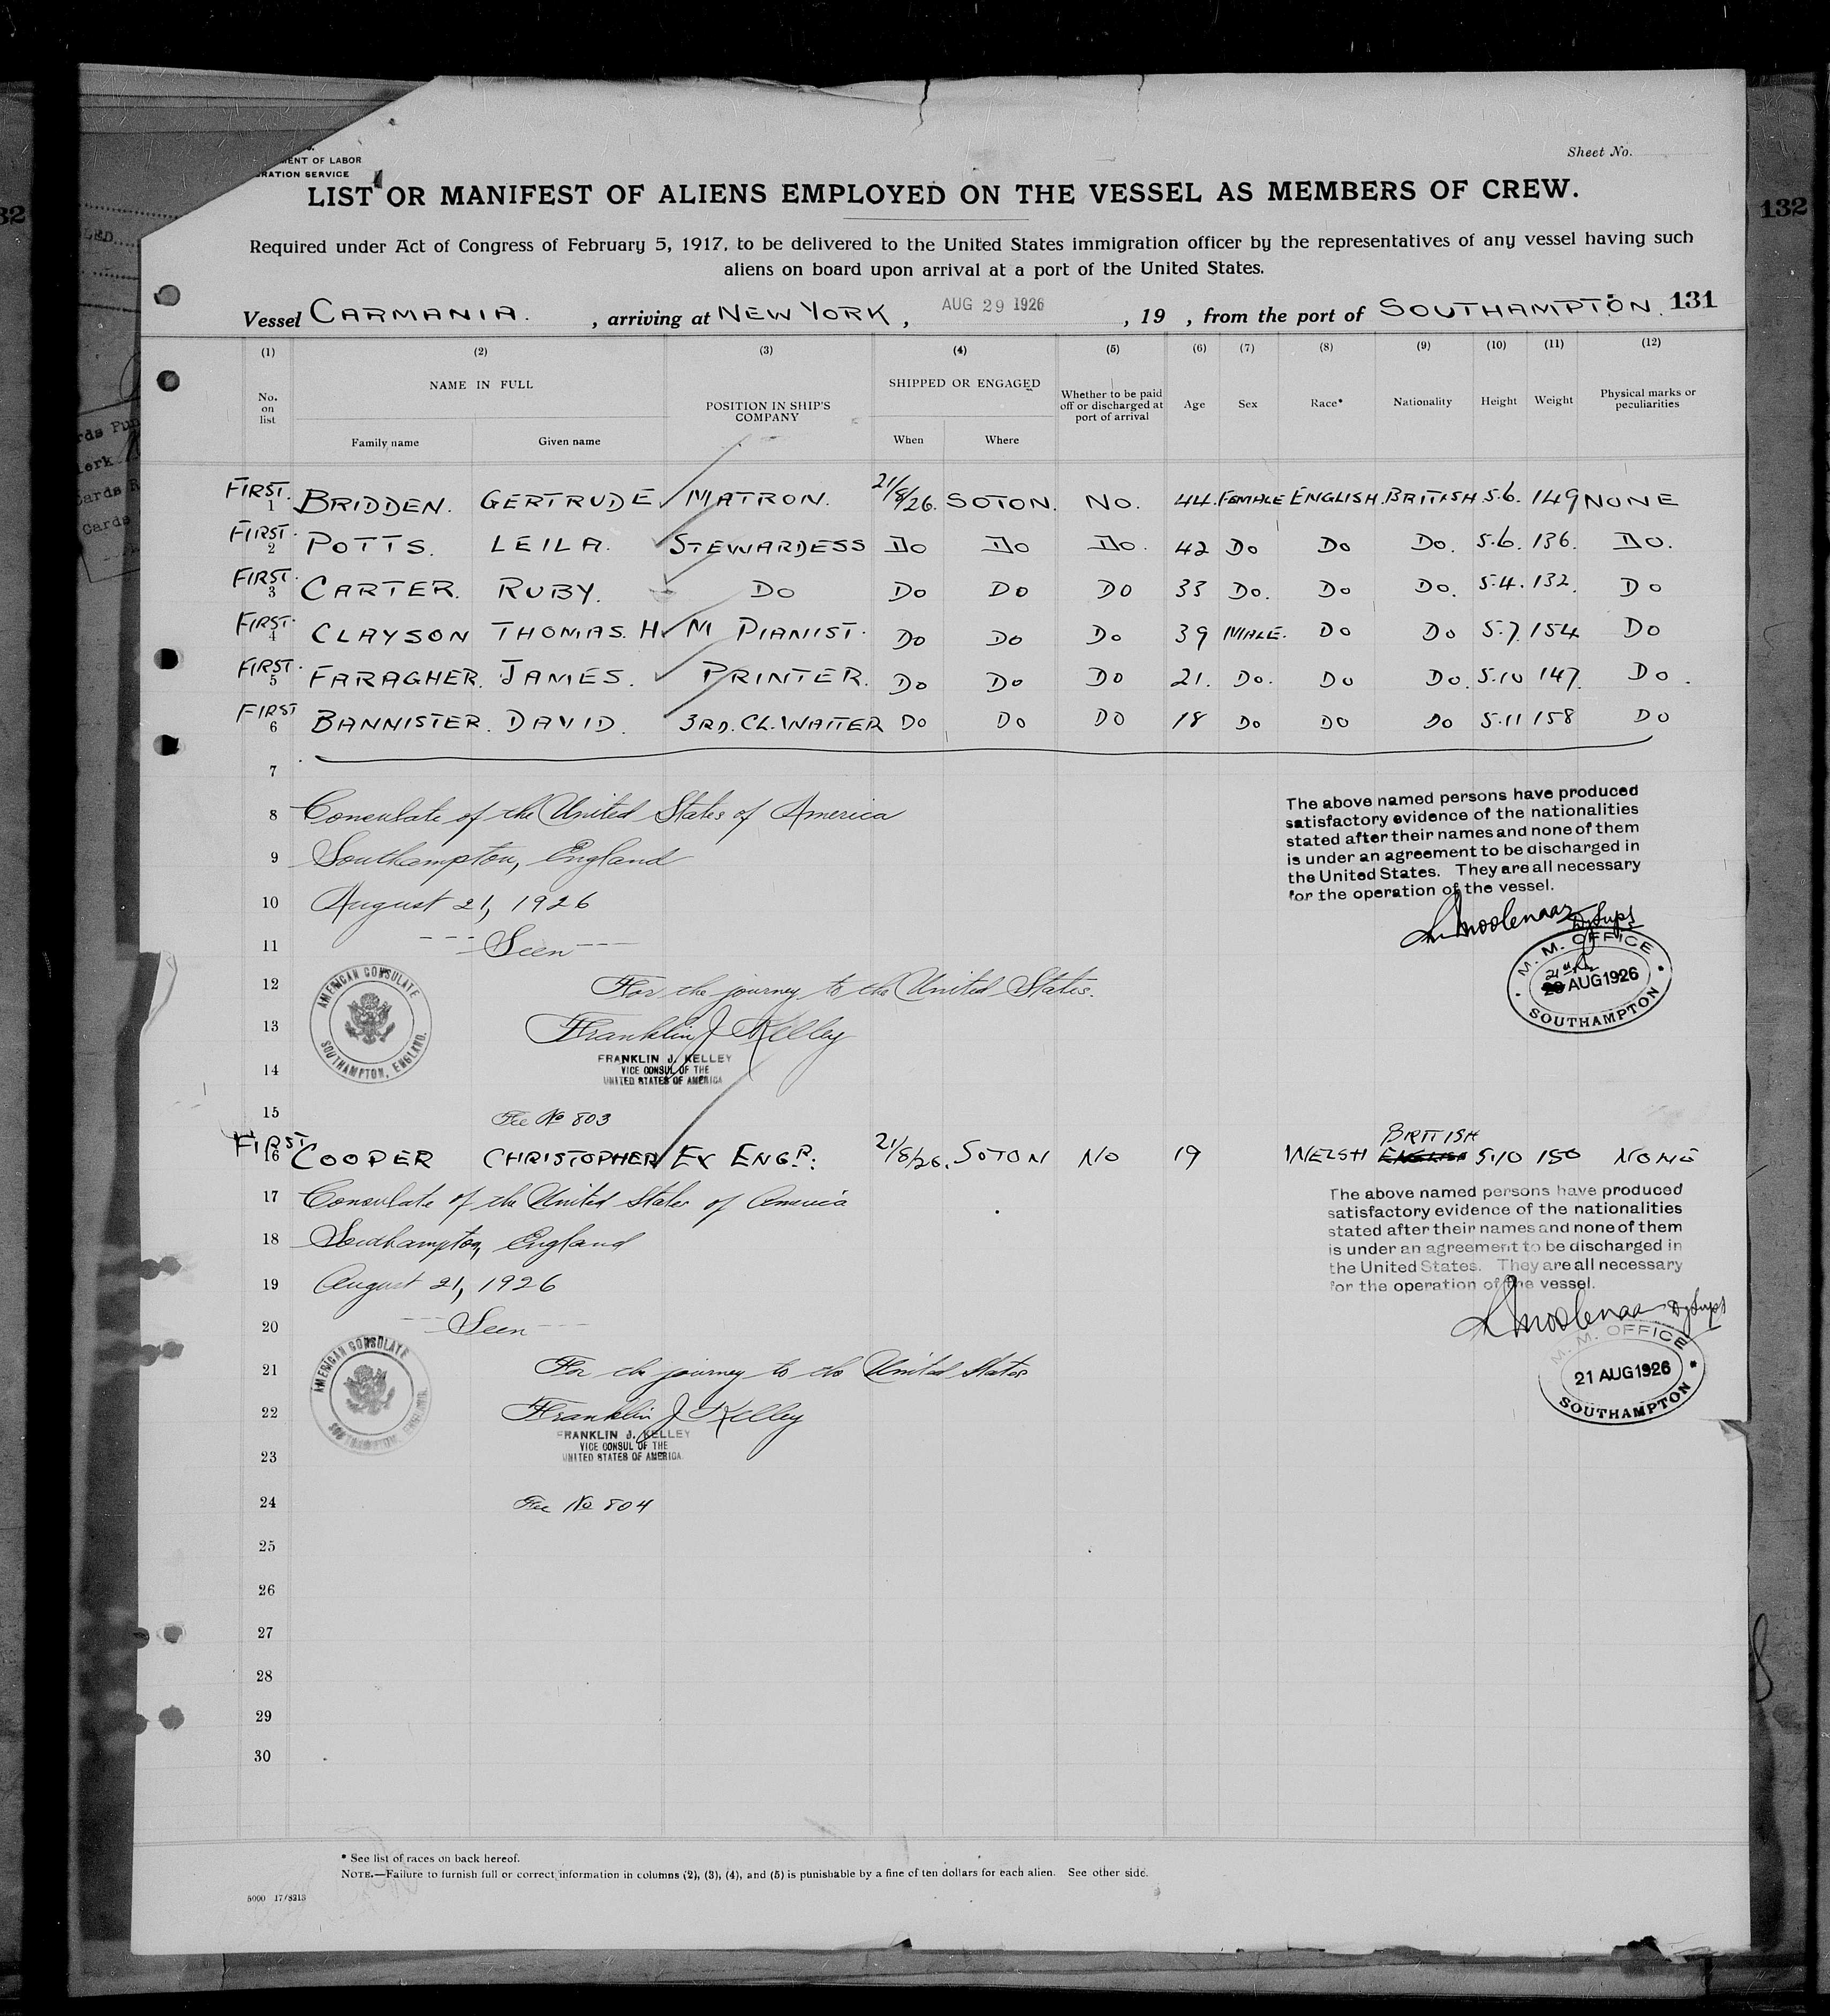 MENT OF LABOR
RATION SERVICE
Sheet No.
LIST OR MANIFEST OF ALIENS EMPLOYED ON THE VESSEL AS MEMBERS OF CREW.
Required under Act of Congress of February 5, 1917, to be delivered to the United States immigration officer by the representatives of any vessel having such
aliens on board upon arrival at a port of the United States.
Vessel CARMANIA. , arriving at NEW YORK , AUG 29 1926 , 19 , from the port of SOUTHAMPTON. 131
132
(1) (2) (3) (4) (5) (6) (7) (8) (9) (10) (11) (12)
No. on list NAME IN FULL Family name Given name POSITION IN SHIP'S COMPANY SHIPPED OR ENGAGED When Where Whether to be paid off or discharged at port of arrival Age Sex Race* Nationality Height Weight Physical marks or peculiarities
FIRST. 1 BRIDDEN. GERTRUDE MATRON. 21/8/26. SOTON. NO. 44. FEMALE ENGLISH. BRITISH 5.6. 149 NONE
FIRST. 2 POTTS. LEILA. STEWARDESS DO DO DO. 42 DO DO DO. 5.6. 136. DO.
FIRST. 3 CARTER. RUBY. DO DO DO DO 33 DO. DO DO. 5.4. 132. DO
FIRST. 4 CLAYSON THOMAS. H. M PIANIST. DO DO DO 39 MALE. DO DO 5.7. 154 DO
FIRST. 5 FARAGHER. JAMES. PRINTER. DO DO DO 21. DO. DO DO. 5.10 147. DO.
FIRST 6 BANNISTER. DAVID. 3RD. CL. WAITER DO DO DO 18 DO DO DO 5.11 158 DO
7
8 Consulate of the United States of America
9 Southampton, England
10 August 21, 1926
11 --- Seen ---
The above named persons have produced
satisfactory evidence of the nationalities
stated after their names and none of them
is under an agreement to be discharged in
the United States. They are all necessary
for the operation of the vessel.
Dy Supt
M. M. OFFICE
21st
AUG 1926
SOUTHAMPTON
12 For the journey to the United States.
AMERICAN CONSULATE
SOUTHAMPTON, ENGLAND.
13 Franklin J Kelley
FRANKLIN J. KELLEY
14 VICE CONSUL OF THE
UNITED STATES OF AMERICA
15 Fee No 803
FIRST 16 COOPER CHRISTOPHER EX ENGR: 21/8/26. SOTON NO 19 WELSH ENGLISH BRITISH 5.10 150 NONE
17 Consulate of the United States of America
18 Southampton, England
19 August 21, 1926
20 --- Seen ---
The above named persons have produced
satisfactory evidence of the nationalities
stated after their names and none of them
is under an agreement to be discharged in
the United States. They are all necessary
for the operation of the vessel.
Dy Supt
M. M. OFFICE
21 AUG 1926
SOUTHAMPTON
AMERICAN CONSULATE
SOUTHAMPTON, ENGLAND.
21 For the journey to the United States
22 Franklin J Kelley
FRANKLIN J. KELLEY
VICE CONSUL OF THE
23 UNITED STATES OF AMERICA.
24 Fee No 804
25
26
27
28
29
30
* See list of races on back hereof.
NOTE.—Failure to furnish full or correct information in columns (2), (3), (4), and (5) is punishable by a fine of ten dollars for each alien. See other side.